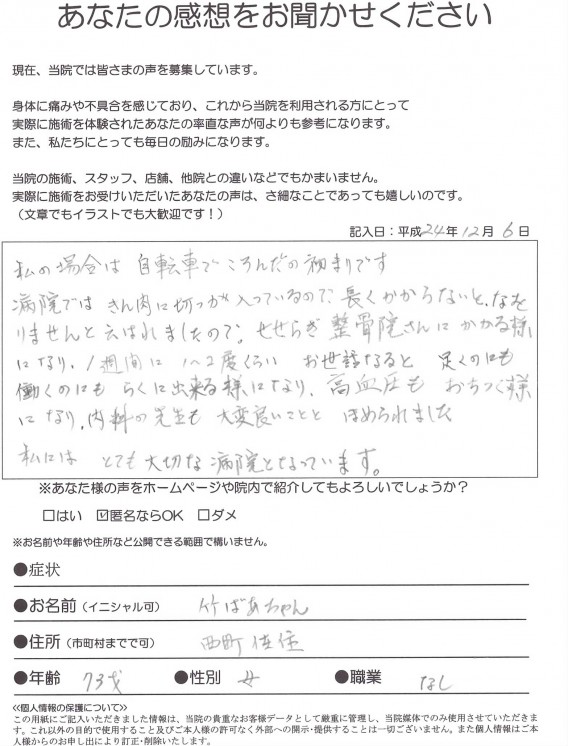 あなたの感想をお聞かせください
現在、当院では皆さまの声を募集しています。
身体に痛みや不具合を感じており、これから当院を利用される方にとって
実際に施術を体験されたあなたの率直な声が何よりも参考になります。
また、私たちにとっても毎日の励みになります。
当院の施術、スタッフ、店舗、他院との違いなどでもかまいません。
実際に施術をお受けいただいたあなたの声は、さ細なことであっても嬉しいのです。
（文章でもイラストでも大歓迎です！）
記入日：平成24年12月6日
私の場合は 自転車でころんだの初まりです
病院では きん肉に切つが入っているので 長くかからないと、なを
りませんと云はれましたので。せせらぎ整骨院さんにかかる様
になり、1週間に 1〜2度くらい お世話なると 足くのにも
働くのにも らくに出来る様になり、高血圧も おちつく様
になり、内科の先生も 大変良いことと ほめられました
私には とても大切な病院となっています。
※あなた様の声をホームページや院内で紹介してもよろしいでしょうか？
□はい ☑匿名ならOK □ダメ
※お名前や年齢や住所など公開できる範囲で構いません。
●症状
●お名前（イニシャル可） 竹ばあちゃん
●住所（市町村までで可） 西町在住
●年齢 73才 ●性別 女 ●職業 なし
≪個人情報の保護について≫
この用紙にご記入いただきました情報は、当院の貴重なお客様データとして厳重に管理し、当院媒体でのみ使用させていただきま
す。これ以外の目的で使用すること及びご本人様の許可なく外部への開示・提供することは一切ございません。また個人情報はご本
人様からのお申し出により訂正・削除いたします。